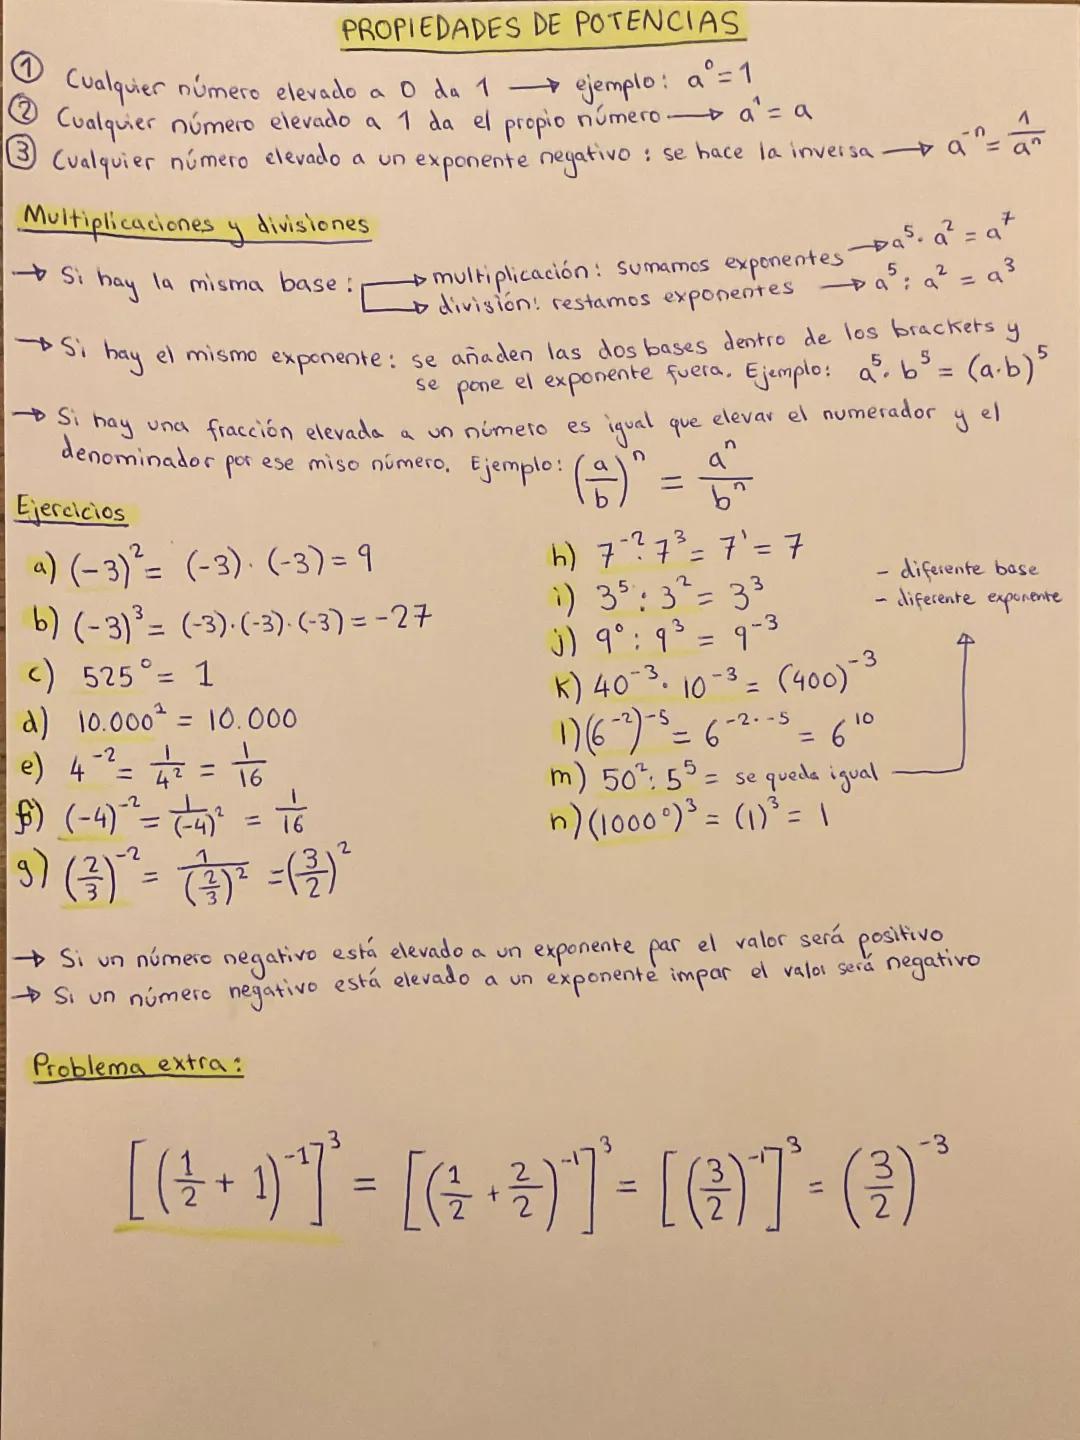 PROPIEDADES DE POTENCIAS
① Cualquier número elevado a 0 da 1 → ejemplo: a⁰ = 1
② Cualquier número elevado a 1 da el propio número → a¹ = a
③ Cualquier número elevado a un exponente negativo : se hace la inversa → a⁻ⁿ = 1/aⁿ
Multiplicaciones y divisiones
→ Si hay la misma base : → multiplicación: sumamos exponentes → a⁵ · a² = a⁷
→ división: restamos exponentes → a⁵ : a² = a³
→ Si hay el mismo exponente: se añaden las dos bases dentro de los brackets y
se pone el exponente fuera. Ejemplo: a⁵ · b⁵ = (a·b)⁵
→ Si hay una fracción elevada a un número es igual que elevar el numerador y el
denominador por ese miso número. Ejemplo: (a/b)ⁿ = aⁿ/bⁿ
Ejercicios
a) (-3)² = (-3) · (-3) = 9
b) (-3)³ = (-3)·(-3)·(-3) = -27
c) 525⁰ = 1
d) 10.000¹ = 10.000
e) 4⁻² = 1/4² = 1/16
f) (-4)⁻² = 1/(-4)² = 1/16
g) (2/3)⁻² = 1/(2/3)² = (3/2)²
h) 7⁻² · 7³ = 7¹ = 7
i) 3⁵ : 3² = 3³
j) 9⁰ : 9³ = 9⁻³
k) 40⁻³ · 10⁻³ = (400)⁻³
l) (6⁻²)⁻⁵ = 6⁻²·⁻⁵ = 6¹⁰
m) 50² : 5⁵ = se queda igual
n) (1000⁰)³ = (1)³ = 1
- diferente base
- diferente exponente
→ Si un número negativo está elevado a un exponente par el valor será positivo
→ Si un número negativo está elevado a un exponente impar el valor será negativo
Problema extra:
[(1/2 + 1)⁻¹]³ = [(1/2 + 2/2)⁻¹]³ = [(3/2)⁻¹]³ = (3/2)⁻³